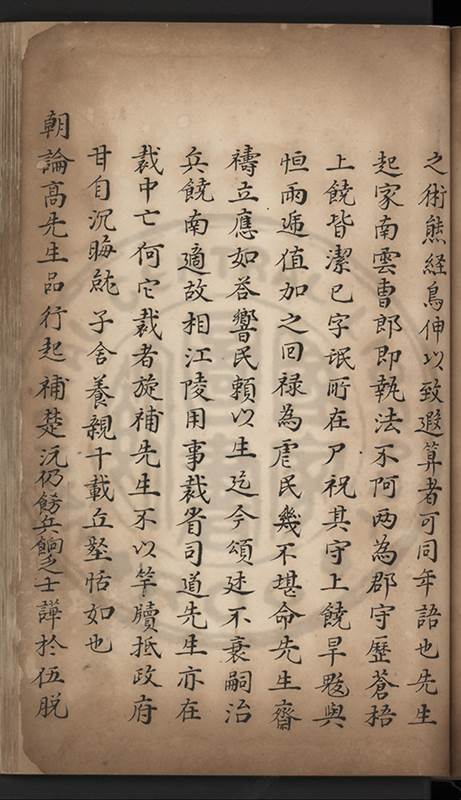 之術熊経鳥伸以致遐算者可同年語也先生
起家南雲曹郎即執法不阿两為郡守歷蒼梧
上饒皆潔已字氓所在尸祝其守上饒旱魃與
恒雨逓值加之回禄為虐民幾不堪命先生齋
禱立應如荅響民頼以生迄今頌述不衰嗣治
兵饒南適故相江陵用事裁省司道先生亦在
裁中亡何它裁者旋補先生不以竿牘抵政府
甘自沉晦䏻子舍養親十載丘壑恬如也
朝論高先生品行起補楚沅仍餝兵餉之士譁於伍脱